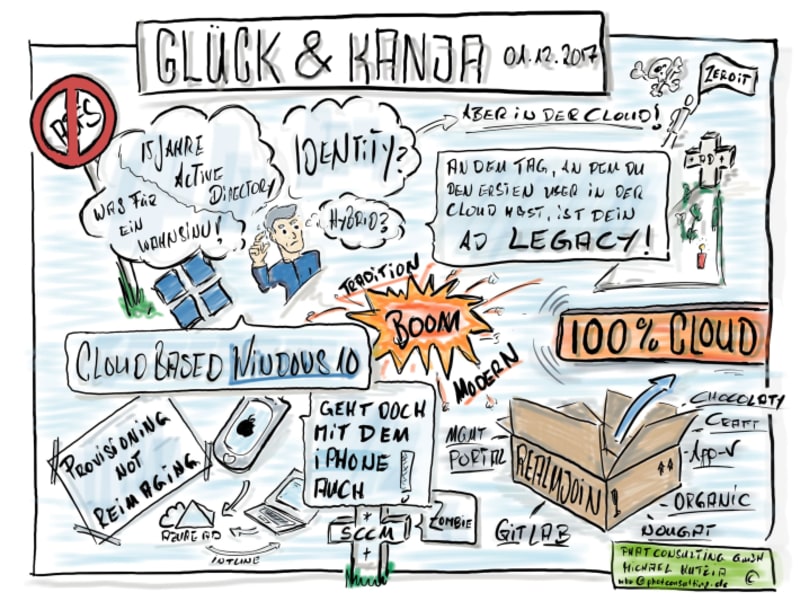 GLÜCK & KANJA 01.12.2017
15 JAHRE
ACTIVE
DIRECTORY
WAS FÜR
EIN
WAHNSINN!
IDENTITY?
HYBRID?
ABER IN DER CLOUD!
ZEROIT
AN DEM TAG, AN DEM DU
DEN ERSTEN USER IN DER
CLOUD HAST, IST DEIN
AD LEGACY!
AD
TRADITION
BOOM
MODERN
100% CLOUD
CLOUD BASED WINDOWS 10
PROVISIONING
NOT
REIMAGING
GEHT DOCH
MIT DEM
IPHONE
AUCH!
AZURE AD
INTUNE
* SCCM +
ZOMBIE
MGMT
PORTAL
REALMJOIN!
GITLAB
CHOCOLATY
CRAFT
APP-V
ORGANIC
NOUGAT
PHATCONSULTING GMBH
MICHAEL
©